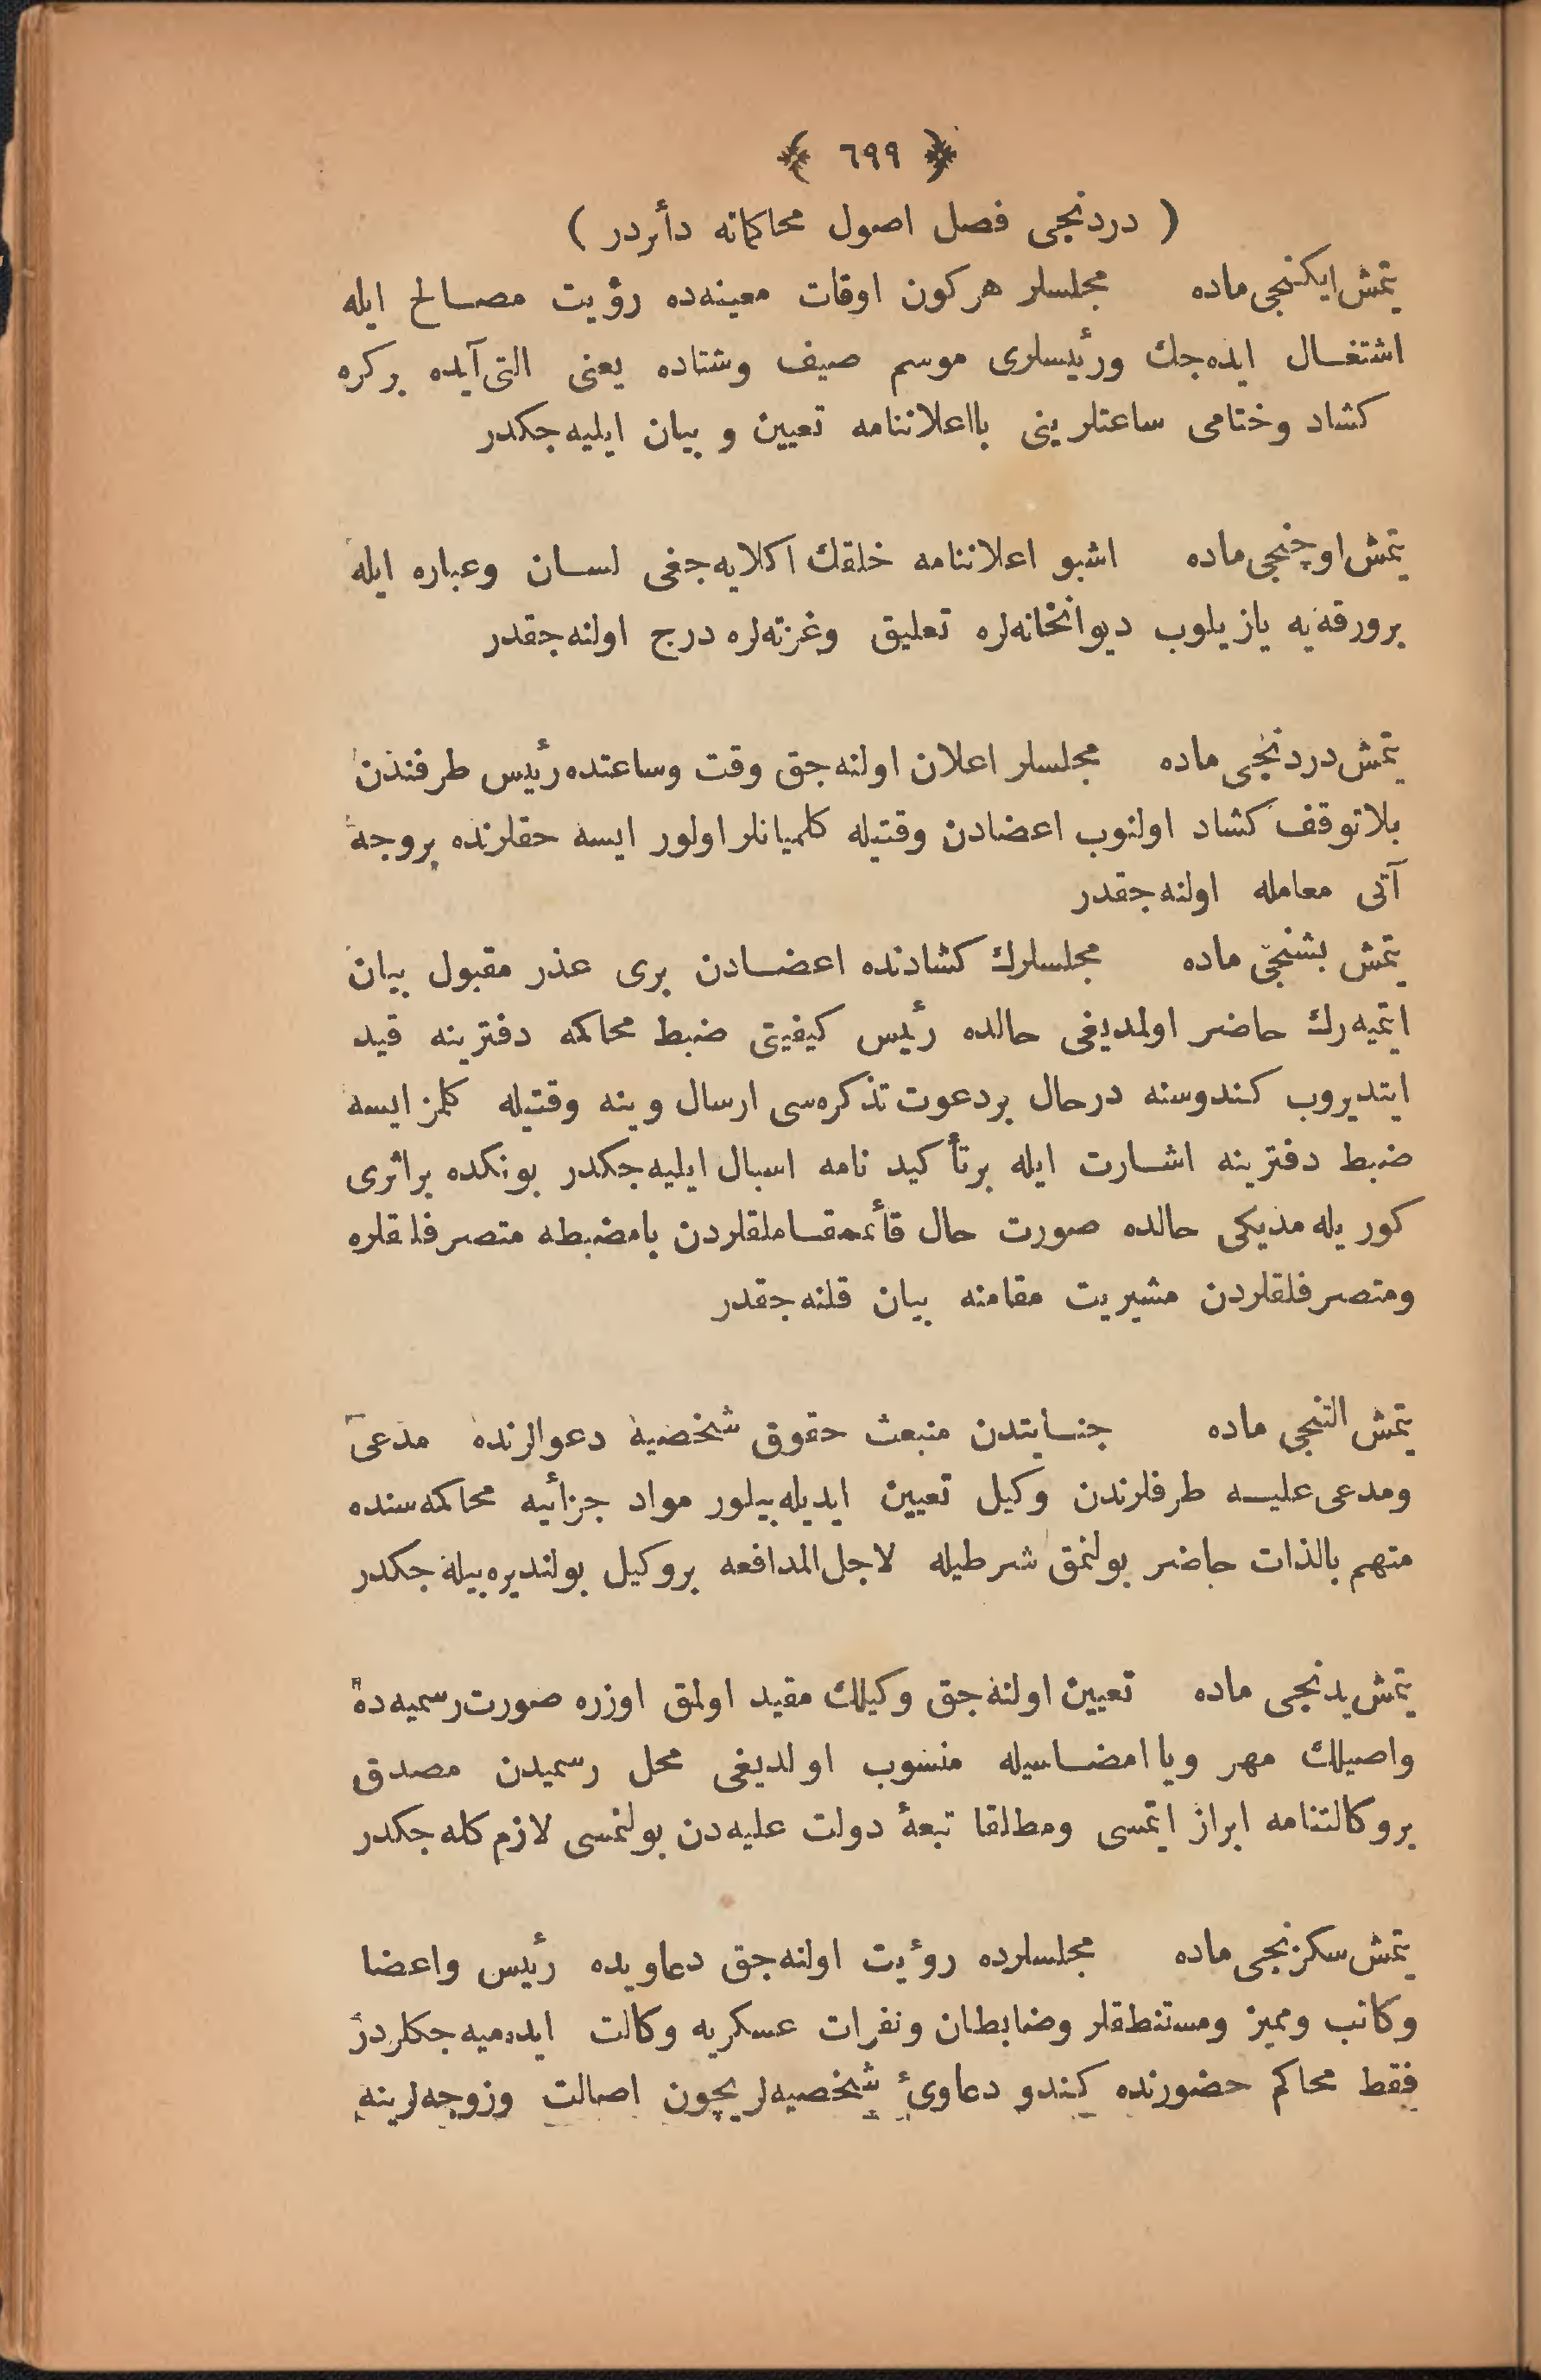 ﴿ ٦٩٩ ﴾
( دردنجی فصل اصول محاكماته دأئردر )
يتمش ايكنجی ماده مجلسلر هركون اوقات معينه‌ده رؤيت مصالح ايله
اشتغال ايده‌جك ورئيسلری موسم صيف وشتاده يعنی التی‌آيده بركره
كشاد وختامی ساعتلرينی بااعلاننامه تعيين و بيان ايليه‌جكدر
يتمش اوچنجی ماده اشبو اعلاننامه خلقك اكلايه‌جغی لسان وعباره ايله
برورقه‌يه يازيلوب ديوانخانه‌لره تعليق وغزته‌لره درج اولنه‌جقدر
يتمش دردنجی ماده مجلسلر اعلان اولنه‌جق وقت وساعتده رئيس طرفندن
بلاتوقف كشاد اولنوب اعضادن وقتيله كلميانلر اولور ايسه حقلرنده بروجه
آتی معامله اولنه‌جقدر
يتمش بشنجی ماده مجلسلرك كشادنده اعضادن بری عذر مقبول بيان
ايتميه‌رك حاضر اولمديغی حالده رئيس كيفيتی ضبط محاكمه دفترينه قيد
ايتديروب كندوسنه درحال بردعوت تذكره‌سی ارسال وينه وقتيله كلمز ايسه
ضبط دفترينه اشارت ايله برتأكيد نامه اسبال ايليه‌جكدر بونكده براثری
كوريله‌مديكی حالده صورت حال قائممقاملقلردن بامضبطه متصرفلقلره
ومتصرفلقلردن مشيريت مقامنه بيان قلنه‌جقدر
يتمش التنجی ماده جنايتدن منبعث حقوق شخصيه دعوالرنده مدعی
ومدعی عليه طرفلرندن وكيل تعيين ايديله‌بيلور مواد جزائيه محاكمه‌سنده
متهم بالذات حاضر بولنمق شرطيله لاجل‌المدافعه بروكيل بولنديره‌بيله‌جكدر
يتمش يدنجی ماده تعيين اولنه‌جق وكيلك مقيد اولمق اوزره صورت رسميه‌ده
واصيلك مهر ويا امضاسيله منسوب اولديغی محل رسميدن مصدق
بروكالتنامه ابراز ايتمسی ومطلقا تبعهٔ دولت عليه‌دن بولنمسی لازم كله‌جكدر
يتمش سكزنجی ماده مجلسلرده رؤيت اولنه‌جق دعاويده رئيس واعضا
وكاتب ومميز ومستنطقلر وضابطان ونفرات عسكريه وكالت ايده‌ميه‌جكلردر
فقط محاكم حضورنده كندو دعاوئ شخصيه‌لريچون اصالت وزوجه‌لرينه